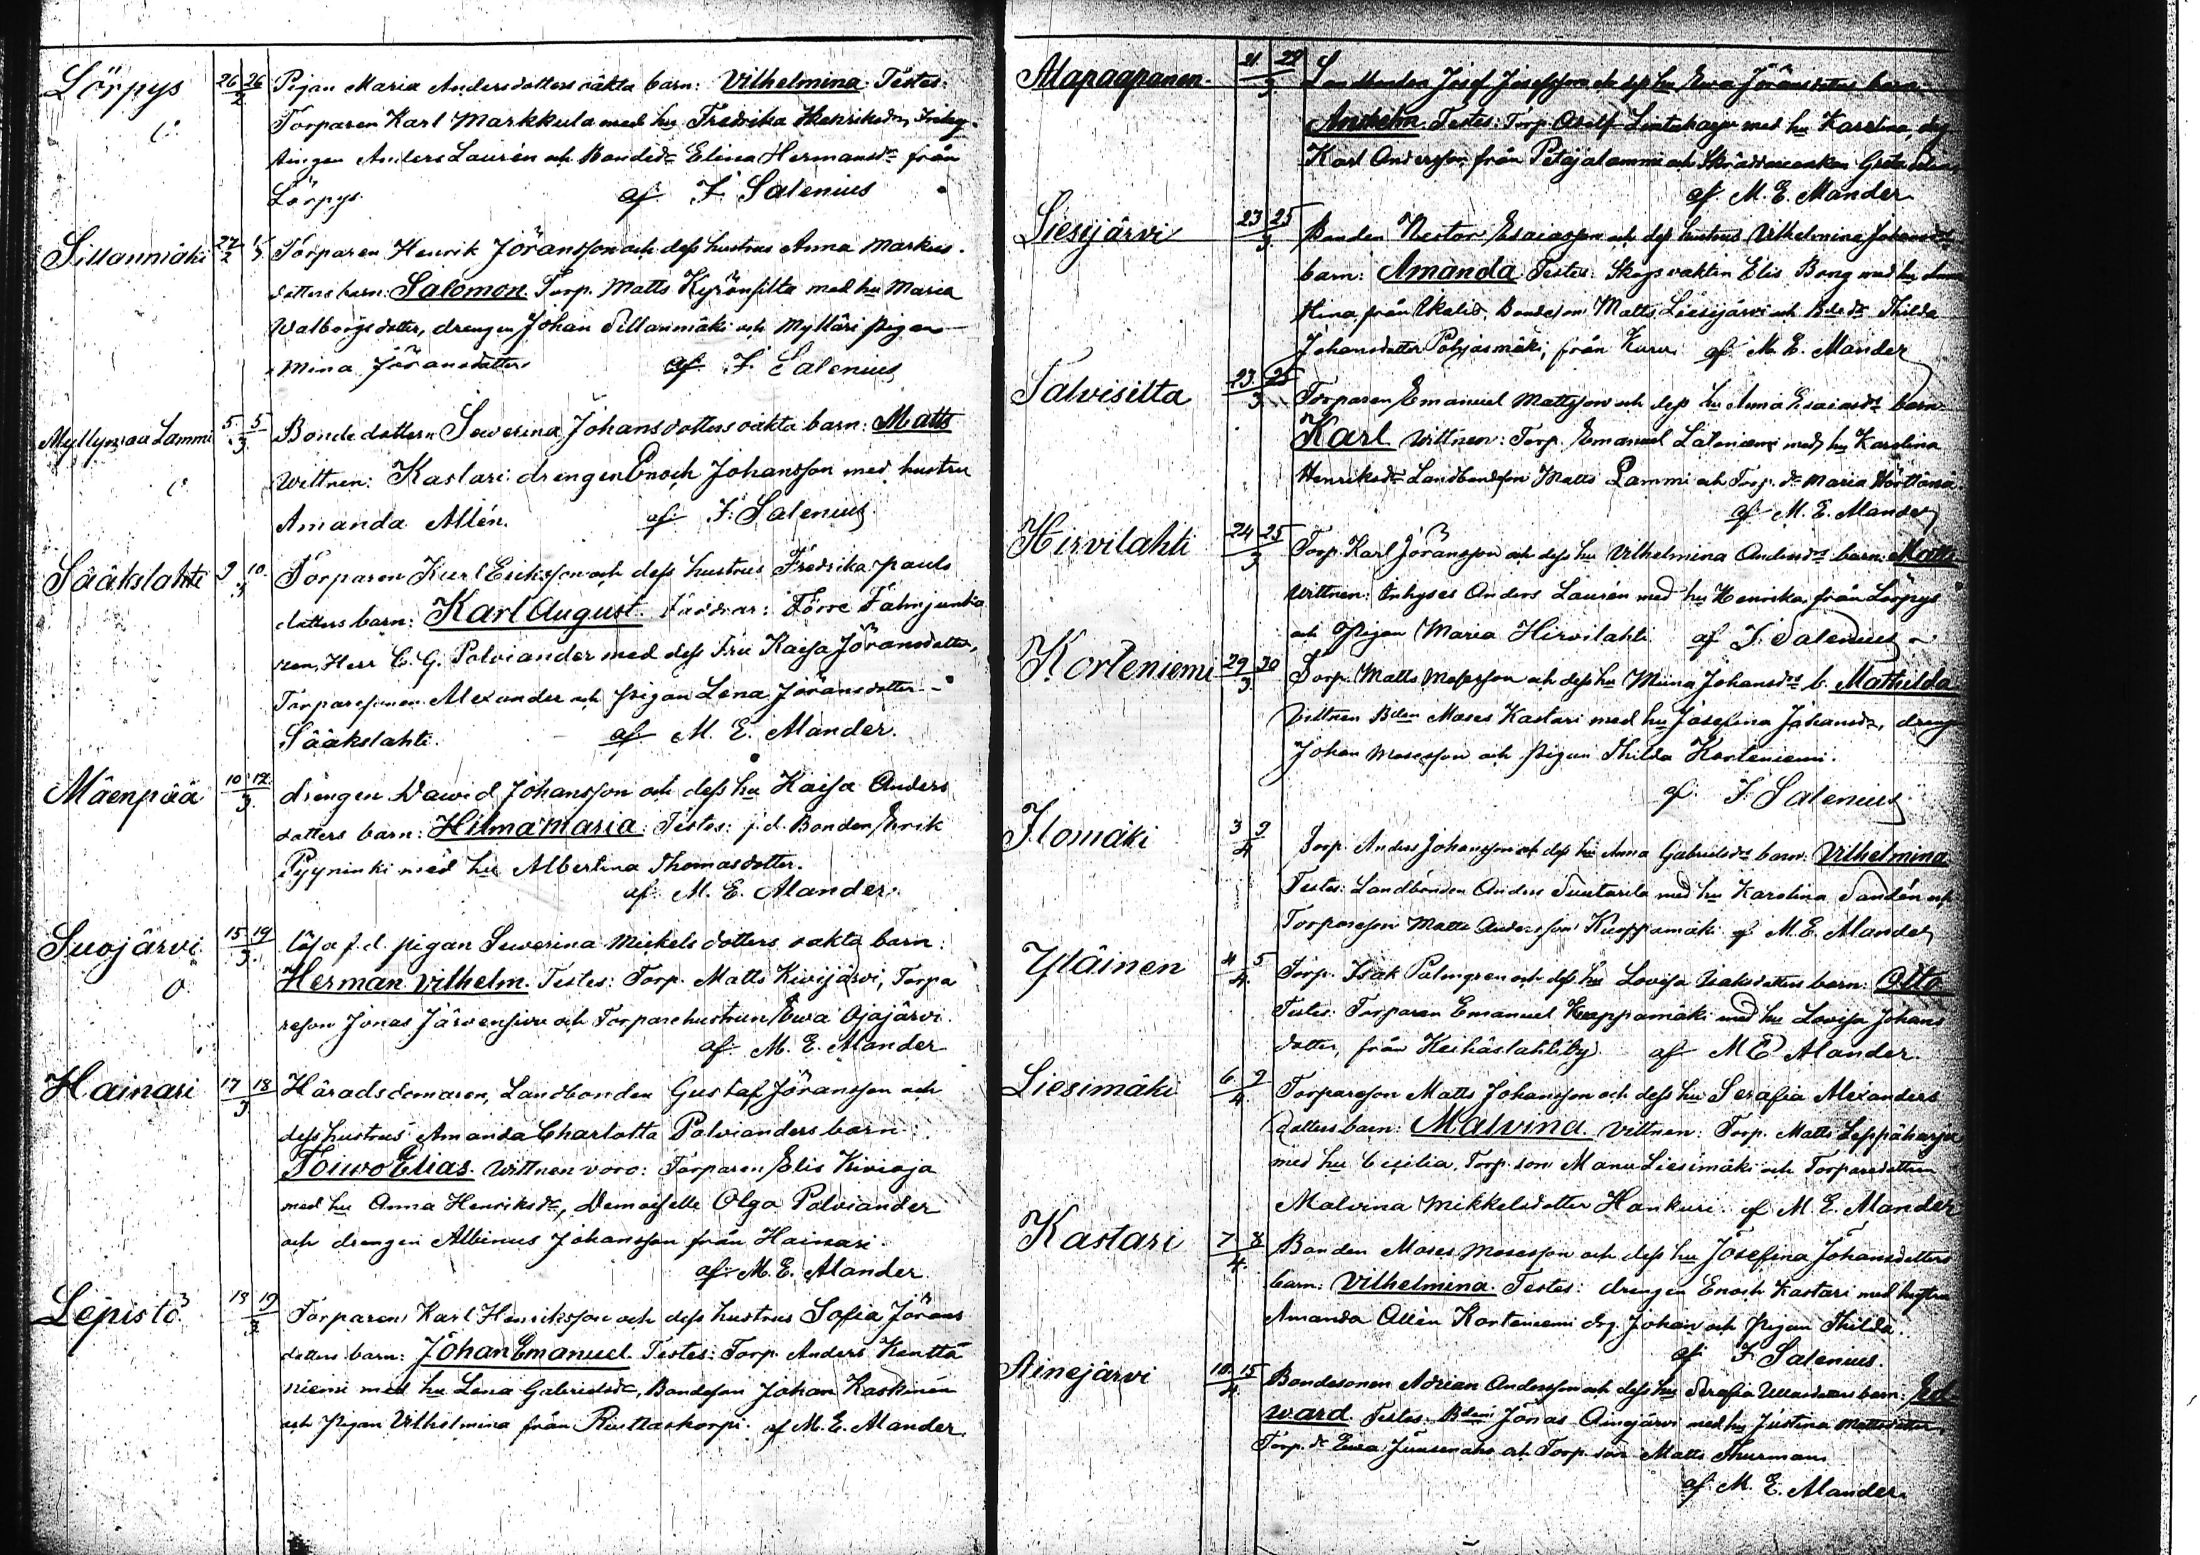 Lörpys 26 26/2 Pigan Maria Andersdotters oäkta barn: Vilhelmina Testes:
Torparen Karl Markkula med hu Fredrika Henriksdr,
Anders Laurén och Bondedr Elina Hermansdr från
Lörpys. af F. Salenius
Sillanmäki 27/2 1/3 Torparen Henrik Jöransson och dess hustrus Anna Markus-
dotters barn: Salomon. Torp. Matts Kyrönsilta med hu Maria
Walborgsdotter, drengen Johan Sillanmäki och Mylläri pigan
Mina Jöransdotter af F. Salenius
Lammi 5 5/3 Bondedottern Sewerina Johansdotters oäkta barn: Matts
Wittnen: Kastari drengen Enoch Johansson med hustru
Amanda Allén. af F. Salenius
Sääkslahti 9 10/3 Torparen Karl Eriksson och dess hustrus Fredrika Pauls
dotters barn: Karl August. Faddrar: Förre
Herr C. G. Palviander med dess Fru Kajsa Jöransdotter,
Torparesonen Alexander och pigan Lena Jöransdotter
Sääkslahti. af M. E. Alander.
Mäenpää 10 12/3 drengen Dawid Johansson och dess hu Kaisa Anders
dotters barn: Hilma Maria. Testes: f.d. Bonden Erik
Pyyninki med hu Albertina Thomasdotter.
af M. E. Alander.
Suojärvi 15 19/3 Lösa f.d. pigan Sewerina Mickelsdotters oakta barn:
Herman Vilhelm. Testes: Torp. Matts Kivijärvi, Torpa
reson Jonas Järvensivu och Torparehustrun Ewa Ojajärvi.
af M. E. Alander
Hainari 17 18/3 Häradsdomaren, Landbonden Gustaf Jöransson och
dess hustrus Amanda Charlotta Palvianders barn
Toiwo Elias. Wittnen voro: Torparen Elis Kivioja
med hu Anna Henriksdr, Demoiselle Olga Palviander
och drengen Albinus Johansson från Hainari.
af M. E. Alander
Lepistö 19/3 Torparen Karl Henriksson och dess hustrus Sofia Jörans
dotters barn: Johan Emanuel. Testes: Torp. Anders Kanttä
niemi med hu Lena Gabrielsdr, Bondeson Johan Koskinen
och Pigan Vilhelmina från Riuttaskorpi. af M. E. Alander
21 28/3 Landbonden Josef Josefsson och dess hu Ewa Jöransdotters barn
Anshelm. Testes: Torp. Adolf Lintuharju med hu Karolina, drg
Karl Andersson från Petäjälammi och
af M. E. Alander
Liesijärvi 23 25/3 Bonden Nestor Esaiasson och dess hustrus Vilhelmina Johansdrs
barn: Amanda Testes: Skogsvakten Elis Bong med hu Anna
Stina från Ekalid, Bondeson Matts Liesijärvi och Bdedr Thilda
Johansdotter Pohjasmäki, från Kuru af M. E. Alander
Talvisilta 23 25/3 Torparen Emanuel Mattsson och dess hu Anna Esaiasdrs barn
Karl Wittnen: Torp. Emanuel Lataniemi med hu Karolina
Henriksdr Landbondeson Matts Lammi och Torp. dr Maria
af M. E. Alander
Hirvilahti 24 25/3 Torp. Karl Jöransson och dess hu Vilhelmina Andersdrs barn: Matts
Wittnen: Inhyses Anders Laurén med hu Henrika, från Lörpys
och Pigan Maria Hirvilahti af F. Salenius
Korteniemi 29 30/3 Torp. Matts Mosesson och dess hu Miina Johansdrs b. Mathilda
Vittnen Bden Moses Kastari med hu Josefina Johansdr, dreng
Johan Mosesson och pigan Thilda Korteniemi.
af F. Salenius
Ilomäki 3 9/4 Torp. Anders Johansson och dess hu Anna Gabrielsdrs barn: Vilhelmina
Testes: Landbonden Anders Suutarila med hu Karolina Sandén och
Torpareson Matts Andersson Kuoppamäki af M. E. Alander
Yläinen 4 5/4 Torp. Isak Palmgren och dess hu Lovisa Isaksdotters barn: Otto
Testes: Torparen Emanuel Kuoppamäki med hu Lovisa Johans
dotter, från Keihäslahti by af M E Alander.
Liesimäki 6 9/4 Torpareson Matts Johansson och dess hu Serafia Alexanders
dotters barn: Malvina. Vittnen: Torp. Matts Leppäharju
med hu Cecilia, Torp. son Manu Liesimäki och Torparedottern
Malvina Mikkelsdotter Hankuri af M. E. Alander
Kastari 7 8/4 Bonden Moses Mosesson och dess hu Josefina Johansdotters
barn: Vilhelmina. Testes: drengen Enoch Kastari med hustru
Amanda Allén Korteniemi drg. Johan och Pigan Thilda.
af F. Salenius.
Ainejärvi 10 15/4 Bondesonen Adrian Andersson och dess hu Serafia barn: Ed-
ward Testes: Bden Jonas Ainejärvi med hu Justina Mattsdotter,
Torp. dr Ewa och Torp. son Matts Thurman
af M. E. Alander.